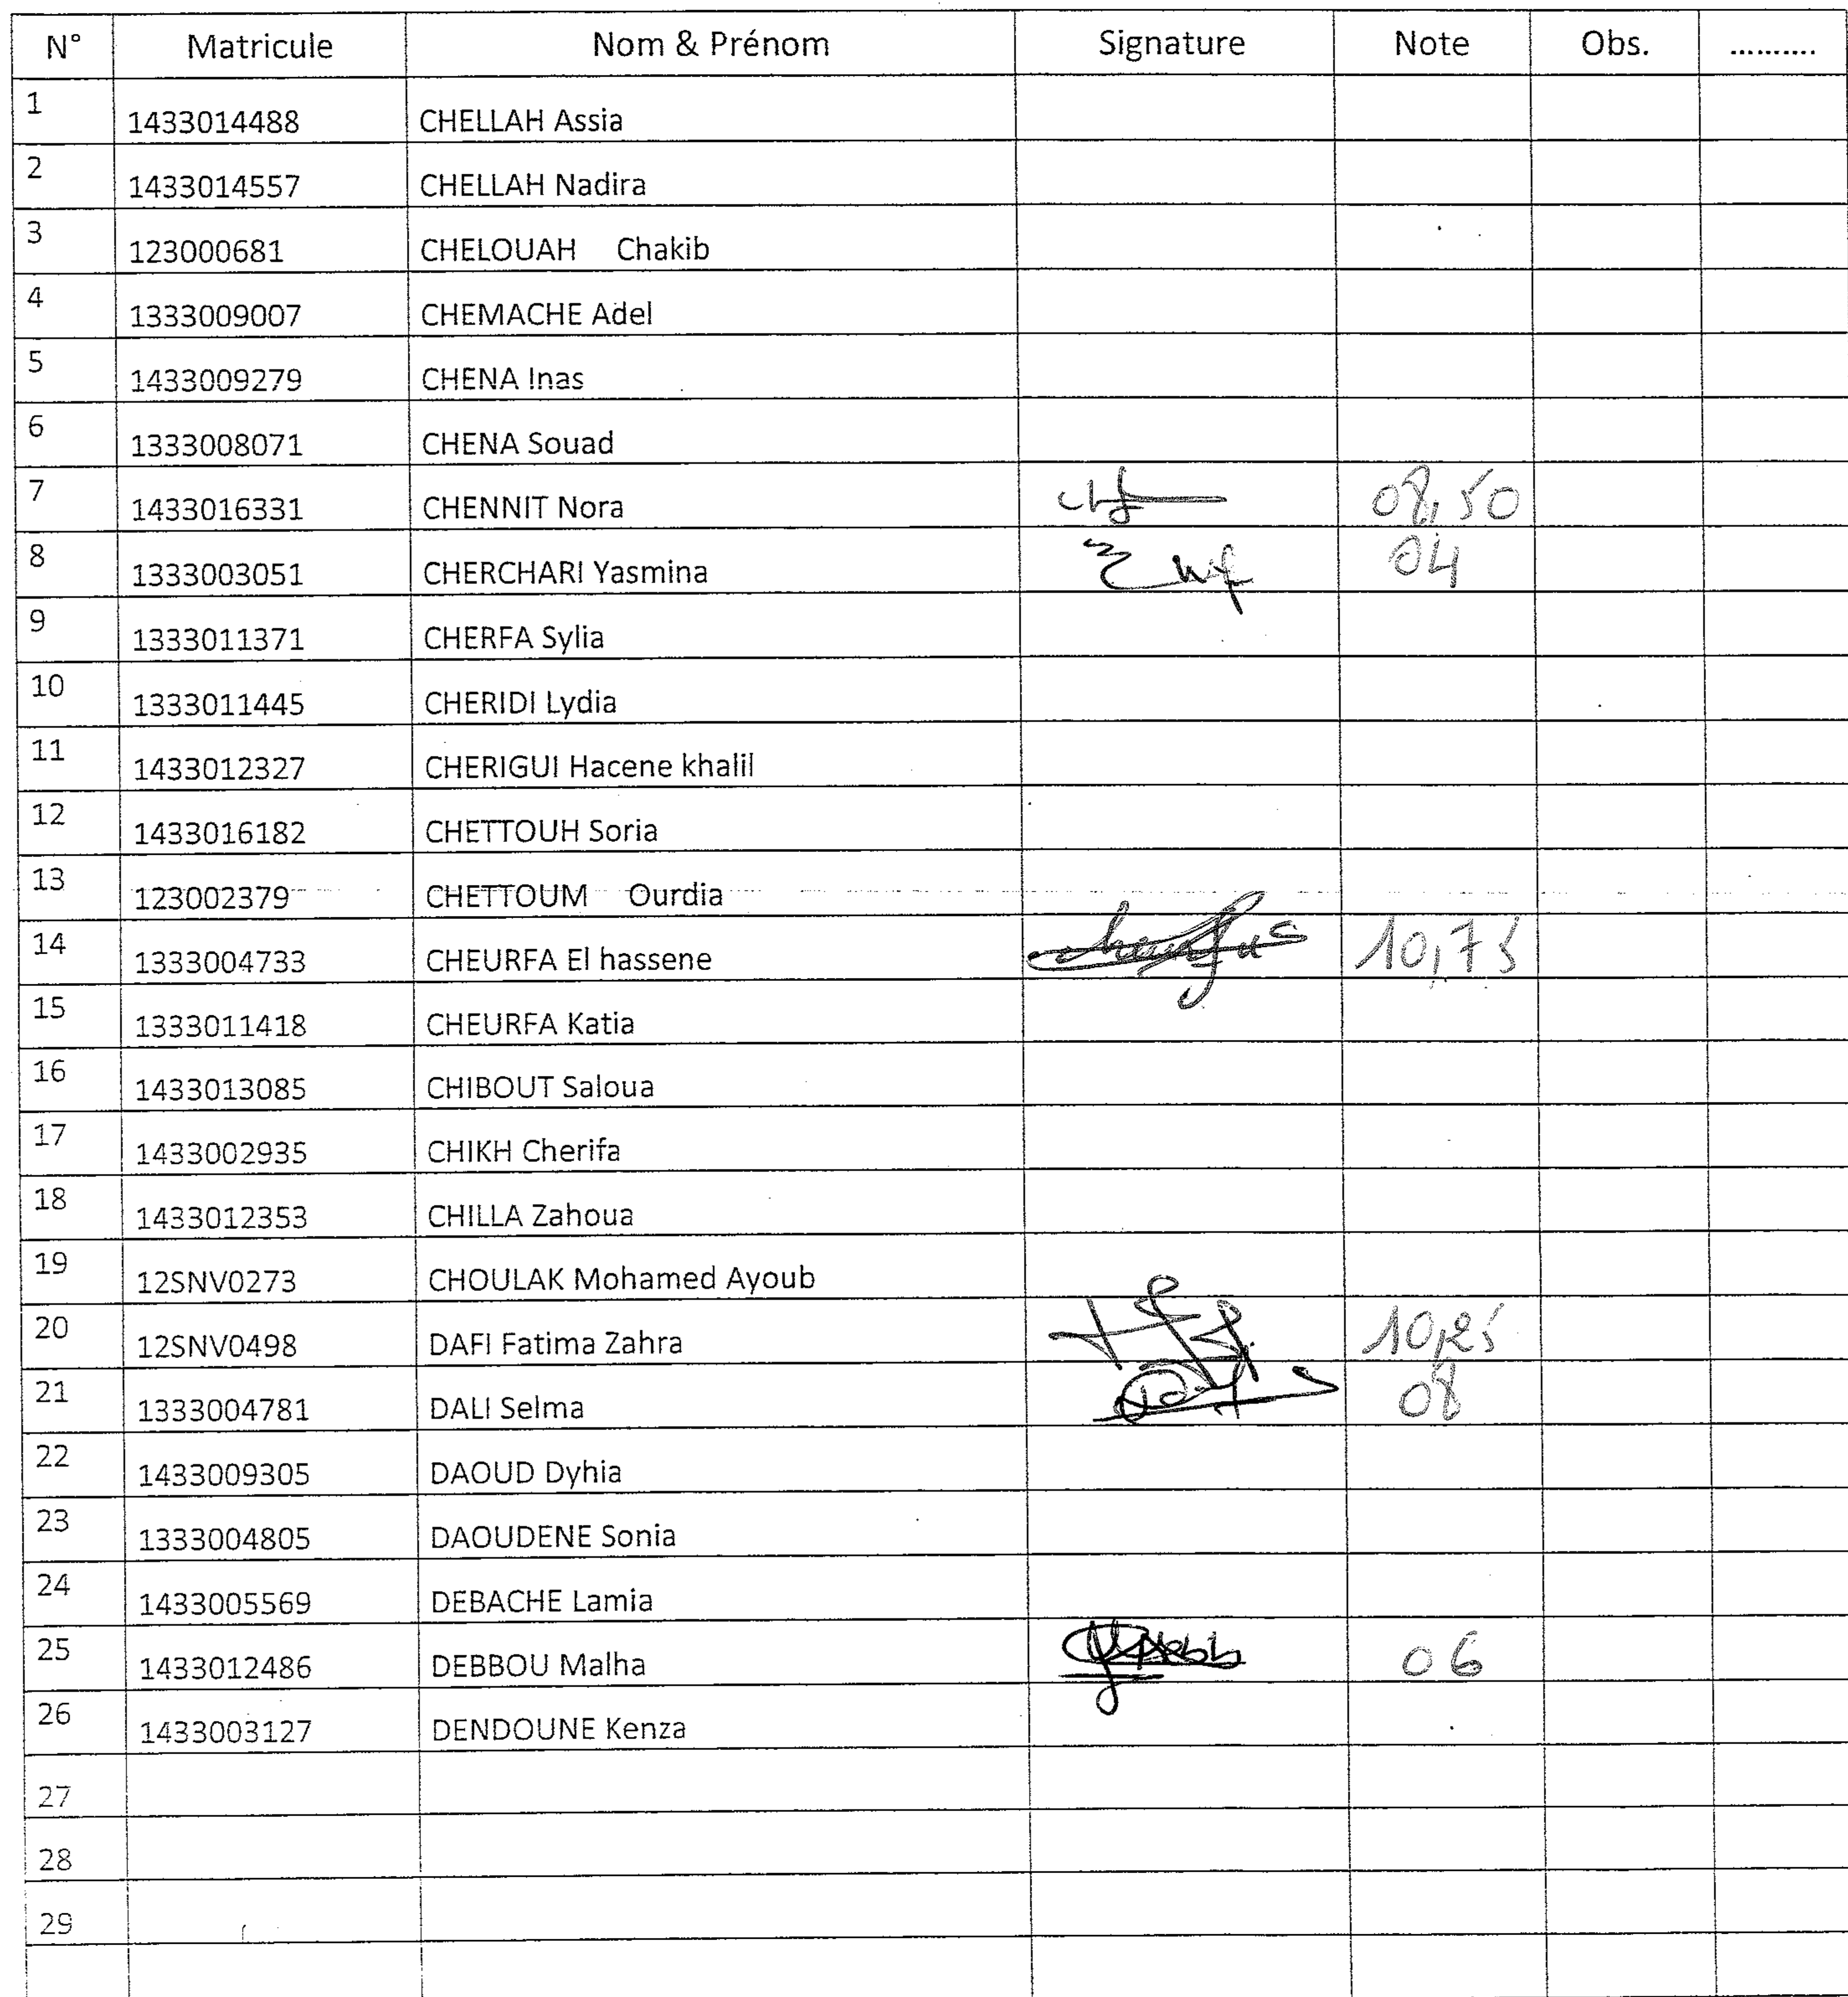 N° Matricule Nom & Prénom Signature Note Obs. ..........
1 1433014488 CHELLAH Assia
2 1433014557 CHELLAH Nadira
3 123000681 CHELOUAH Chakib
4 1333009007 CHEMACHE Adel
5 1433009279 CHENA Inas
6 1333008071 CHENA Souad
7 1433016331 CHENNIT Nora 08,50
8 1333003051 CHERCHARI Yasmina 04
9 1333011371 CHERFA Sylia
10 1333011445 CHERIDI Lydia
11 1433012327 CHERIGUI Hacene khalil
12 1433016182 CHETTOUH Soria
13 123002379 CHETTOUM Ourdia
14 1333004733 CHEURFA El hassene 10,75
15 1333011418 CHEURFA Katia
16 1433013085 CHIBOUT Saloua
17 1433002935 CHIKH Cherifa
18 1433012353 CHILLA Zahoua
19 12SNV0273 CHOULAK Mohamed Ayoub
20 12SNV0498 DAFI Fatima Zahra 10,25
21 1333004781 DALI Selma 08
22 1433009305 DAOUD Dyhia
23 1333004805 DAOUDENE Sonia
24 1433005569 DEBACHE Lamia
25 1433012486 DEBBOU Malha 06
26 1433003127 DENDOUNE Kenza
27
28
29